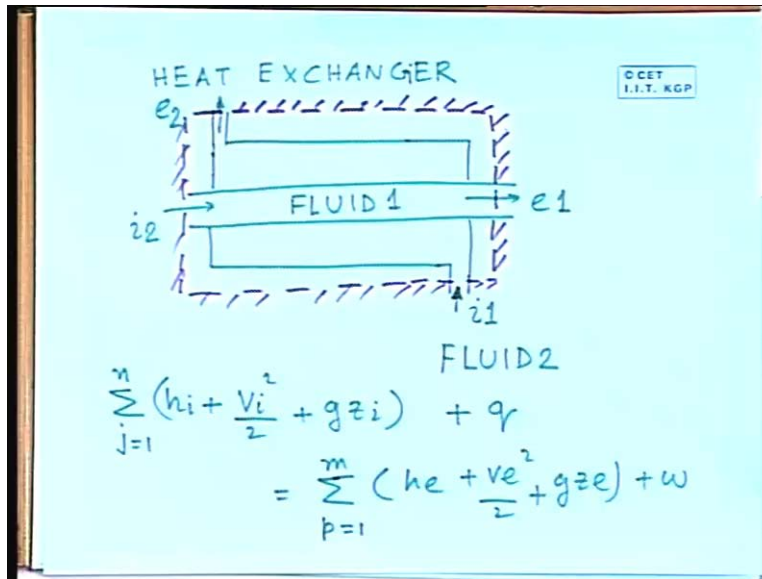 HEAT EXCHANGER
© CET
I.I.T. KGP
e2
FLUID 1
e1
i2
i1
FLUID 2
n
∑ (hi + Vi²/2 + gzi) + q
j=1
= m
∑ (he + ve²/2 + gze) + w
p=1